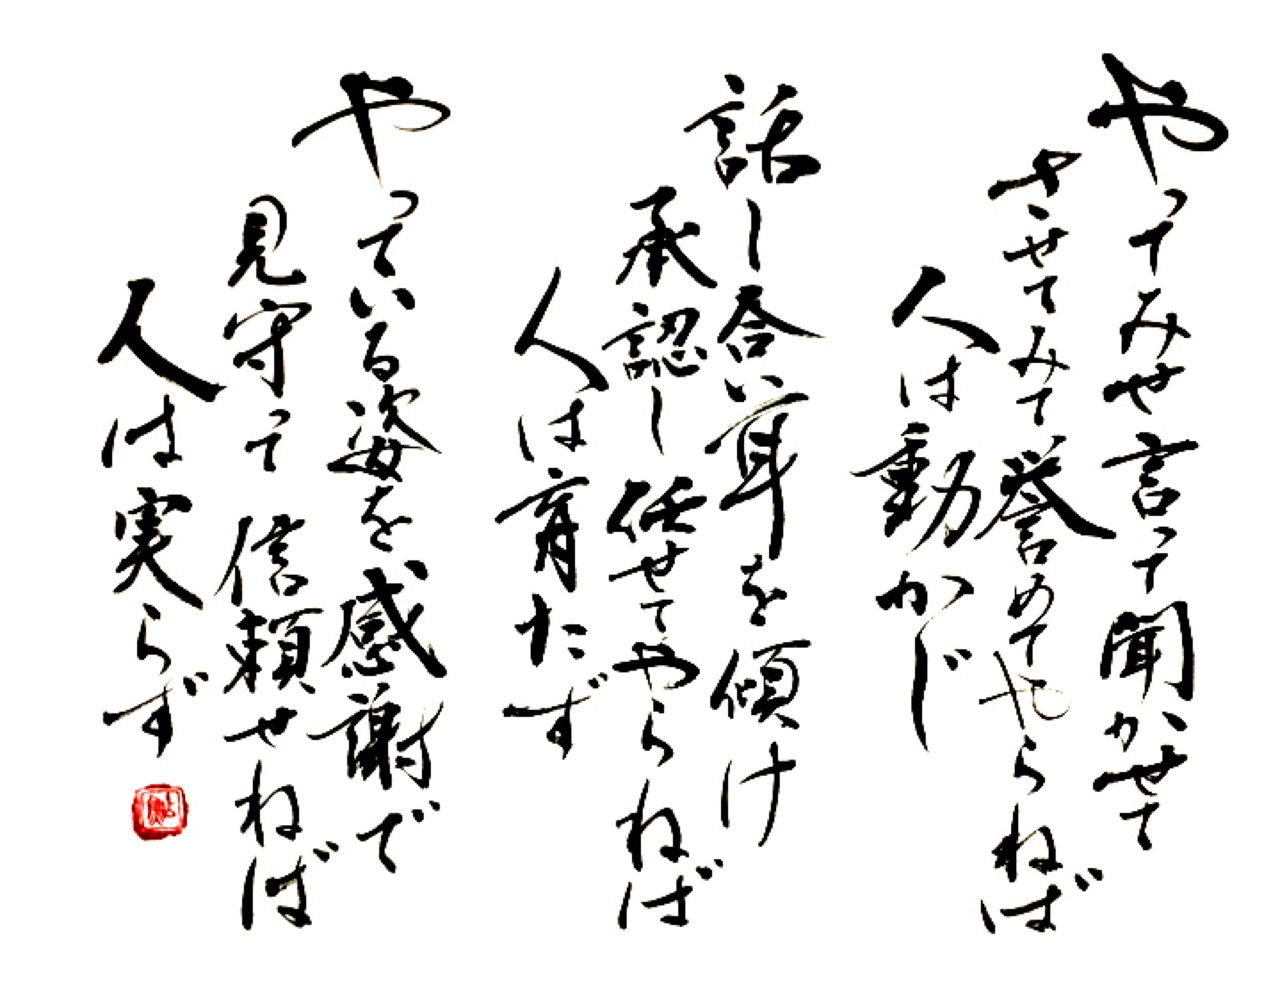 やってみせ言って聞かせて
させてみて誉めてやらねば
人は動かじ
話し合い耳を傾け
承認し任せてやらねば
人は育たず
やっている姿を感謝で
見守って信頼せねば
人は実らず